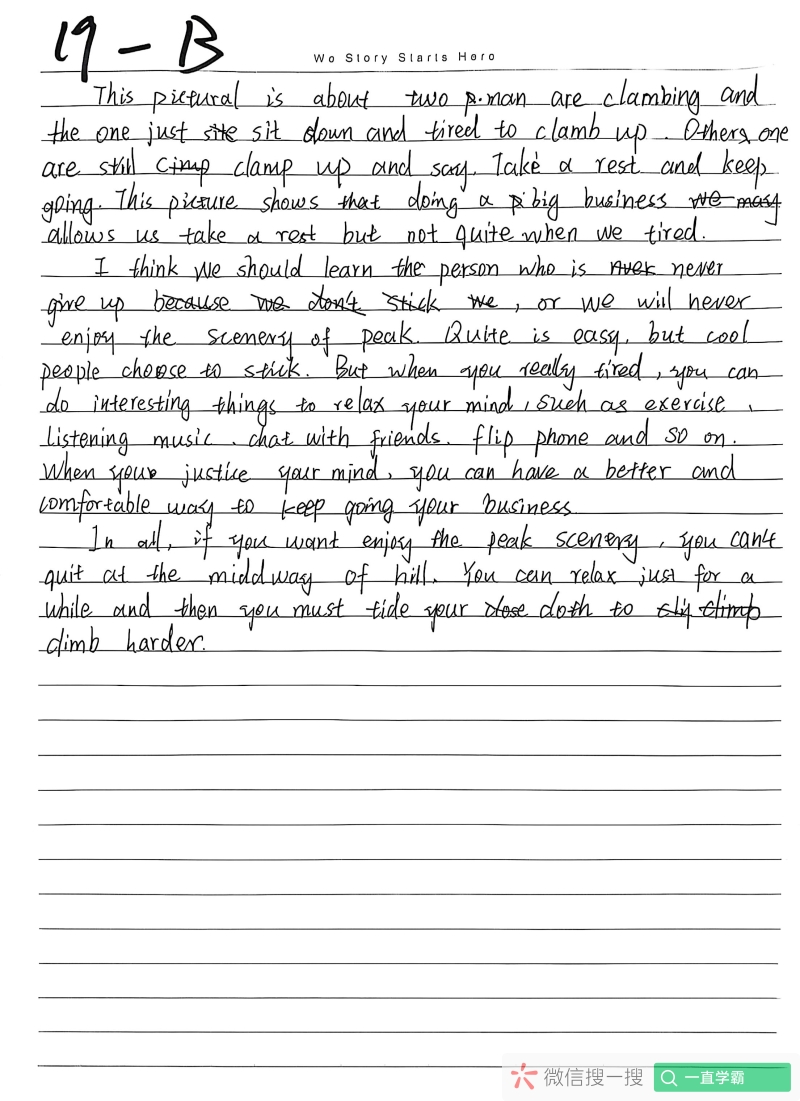 19-B
Wo Story Starts Hero
This pictural is about two p.man are clambing and
the one just site sit down and tired to clamb up. Others, one
are still Cimp clamp up and say. Take a rest and keep
going. This picture shows that doing a p big business we may
allows us take a rest but not quite when we tired.
I think we should learn the person who is nver never
give up because we don't stick we, or we will never
enjoy the scenery of peak. Quite is easy, but cool
people choose to stick. But when you really tired, you can
do interesting things to relax your mind, such as exercise,
listening music, chat with friends, flip phone and so on.
When your justice your mind, you can have a better and
comfortable way to keep going your business
In all, if you want enjoy the peak scenery, you can't
quit at the middway of hill. You can relax just for a
while and then you must tide your close cloth to climp
climb harder.
微信搜一搜
一直学霸